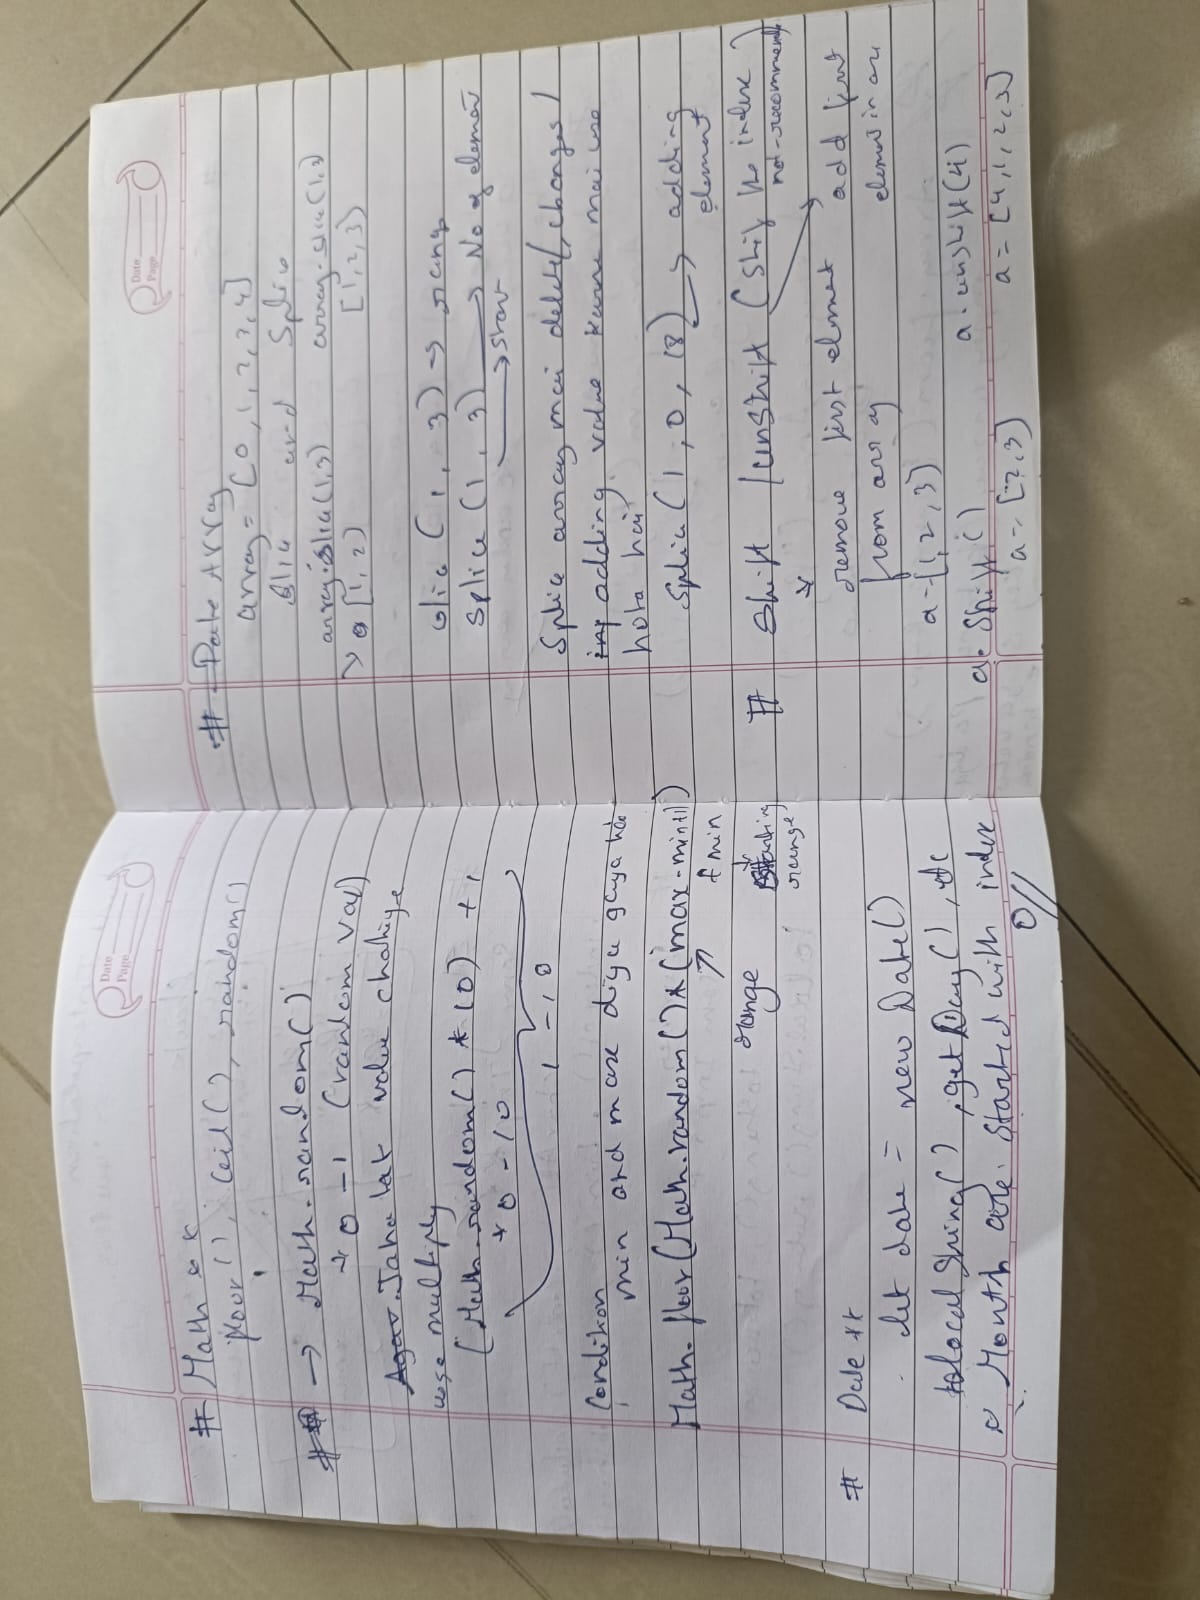 Date
Page
# Math **
floor(), ceil(), random()
## → Math.random()
→ 0 - 1 (random val)
Agar Jaha tak value chahiye
use multiply
(Math.random() * 10) + 1
→ 0 - 10
1 - 10
Condition
min and max diya gaya hai
Math.floor(Math.random()*(max-min+1)
+ min
range
starting
range
# Date **
let date = new Date()
tolocalString(), getDay(), etc
Month are started with index
0//
Date
Page
# Date Array
array = [0, 1, 2, 3, 4]
Slice and Splice
array.slice(1,3) array.slice(1,3)
→ [1, 2) [1, 2, 3)
slice (1, 3) → range
Splice (1, 3) → No of element
→ start
Splice array mai delete/changes/
adding value karne mai use
hota hai
Splice (1, 0, 18) → adding
element
# Shift /unshift (Shift the index)
not-recommended
remove first element add first
from array element in arr
a = [1, 2, 3)
a.Shift() a.unshift(4)
a = [2, 3) a = [4, 1, 2, 3]